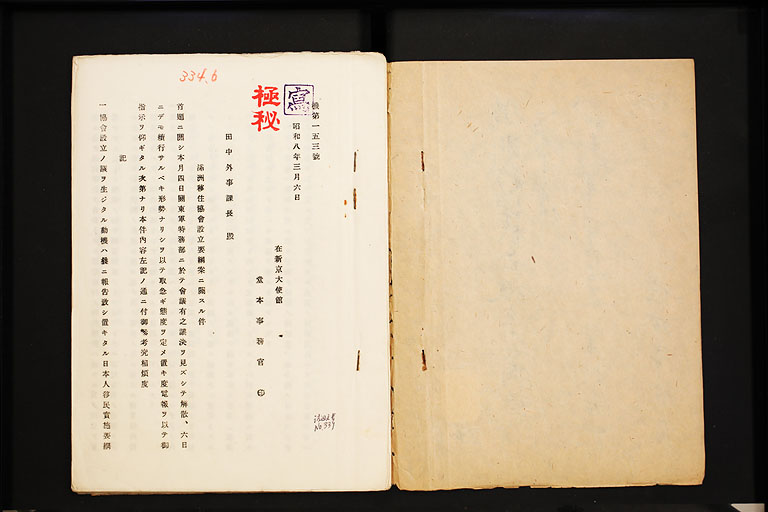 334.6
寫
極秘
機第一五三號
昭和八年三月六日
在新京大使館
堂本事務官 印
田中外事課長 殿
滿洲移住協會設立要綱案ニ關スル件
首題ニ關シ本月四日關東軍特務部ニ於テ會議有之議決ヲ見ズシテ解散、六日
ニデモ續行サルベキ形勢ナリシヲ以テ取急ギ態度ヲ定メ置キ度電報ヲ以テ御
指示ヲ仰ギタル次第ナリ本件内容左記ノ通ニ付御參考究相煩度
記
一協會設立ノ議ヲ生ジタル動機ハ曩ニ報告致シ置キタル日本人移民實施要綱
No.939